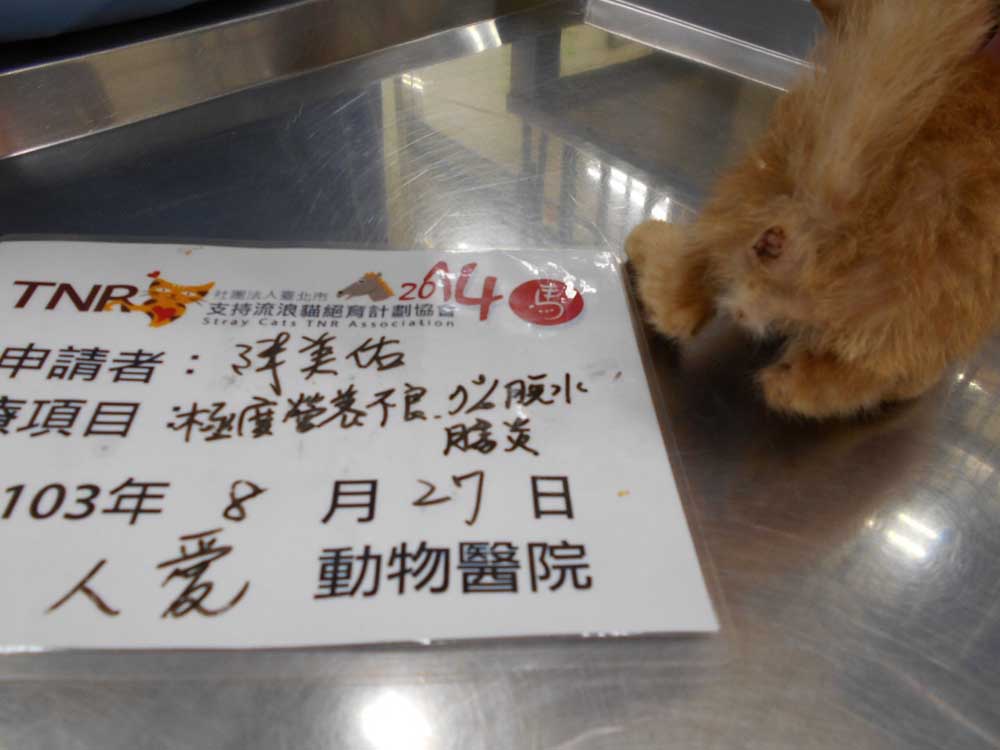 TNR 社團法人臺北市 2014 馬
支持流浪貓絕育計劃協會
Stray Cats TNR Association
申請者：陳美佑
療項目 極度營養不良.9%脫水
腸炎
103年 8 月 27 日
人愛 動物醫院